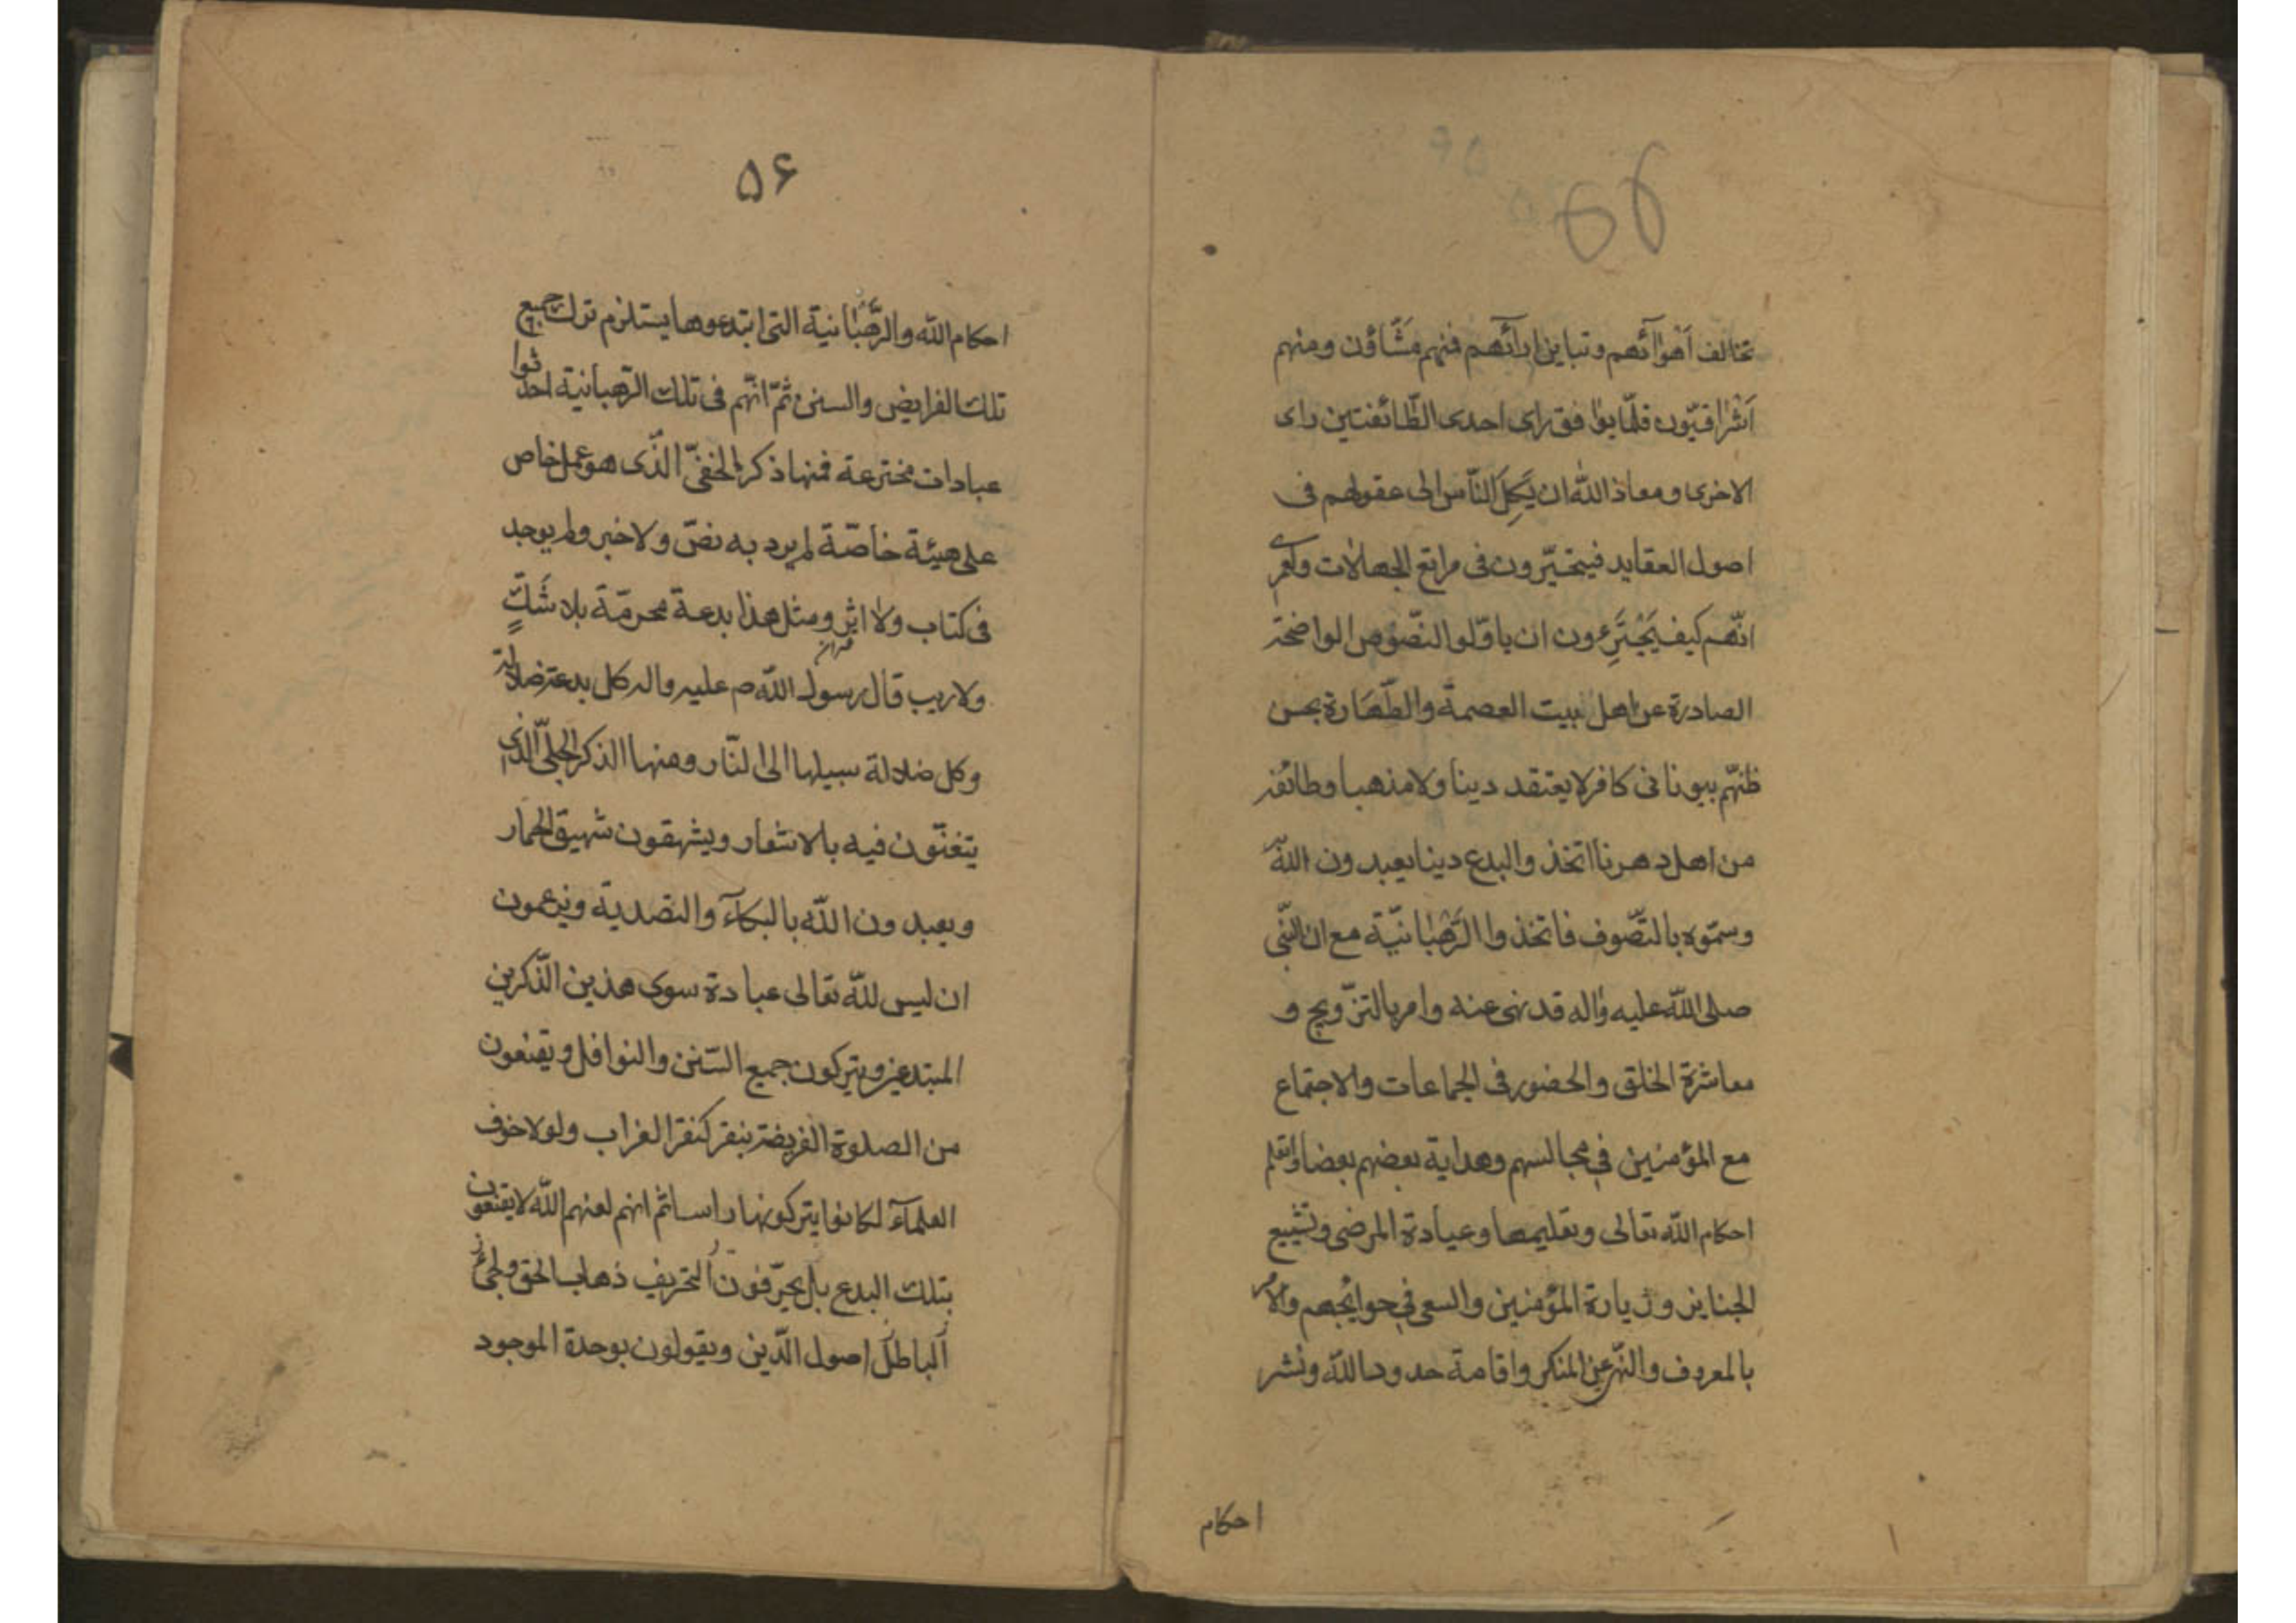 تخالف اَهْوٰآئهم وتباين ارآئهم فمنهم مَشّاؤن ومنهم
اَشْراقيّون قلّما يوافق راى احدى الطّائفتين راى
الاخرى ومعاذ اللّه ان يَكِلَ النّاس الى عقولهم فى
اصول العقايد فيتحيّرون فى مراتع الجهالات ولعمرى
انّهم كيف يَجْتَرِءون ان ياوّلو النّصوص الواضحة
الصادرة عن اهل بيت العصمة والطّهارة بحسن
ظنّهم بيونانى كافر لا يعتقد دينا ولا مذهبا وطائفة
من اهل دهرنا اتخذ والبدع دينا يعبدون اللّه
وسمّوه بالتّصوف فاتخذوا الرَّهْبٰانيّة مع ان النّبى
صلى اللّه عليه واله قد نهى عنه وامر بالتزّويج و
معاشرة الخلق والحضور فى الجماعات والاجتماع
مع المؤمنين فى مجالسهم وهداية بعضهم بعضا وتعلم
احكام اللّه تعالى وتعليمها وعيادة المرضى وتشييع
الجنايز وزيارة المؤمنين والسعى فى حوايجهم والامر
بالمعروف والنّهى عن المنكر واقامة حدود اللّه ونشر
احكام
۵۶
احكام اللّه والرَّهْبٰانية التى ابتدعوها يستلزم ترك جميع
تلك الفرايض والسنن ثمّ انّهم فى تلك الرّهبانية احدثوا
عبادات مخترعة فمنها ذكر الخفىّ الّذى هو عمل خاص
على هيئة خاصّة لم يرد به نصّ ولا خبر ولم يوجد
فى كتاب ولا اثر ومثل هذا بدعة محرمّة بلا شَكٍّ
ولاريب قال رسول اللّه ص عليه واله كل بدعة ضلالة
وكل ضلالة سبيلها الى النّار ومنها الذكر الجلىّ الّذى
يتغنّون فيه بالاشعار ويشهقون شهيق الحمار
ويعبدون اللّه بالبكآء والتصدية ويزعمون
ان ليس للّه تعالى عبادة سوى هذين الّذكرين
المبتدعين ويتركون جميع السّنن والنوافل ويقنعون
من الصلوة الفريضة بنقر كنقر الغراب ولولا خوف
العلمآء لكانوا يتركونها راسا ثم انهم لعنهم اللّه لا يقنعون
بتلك البدع بل يحرّفون التحريف ذهاب الحق ولجئ
الباطل اصول الّدين ويقولون بوحدة الموجود